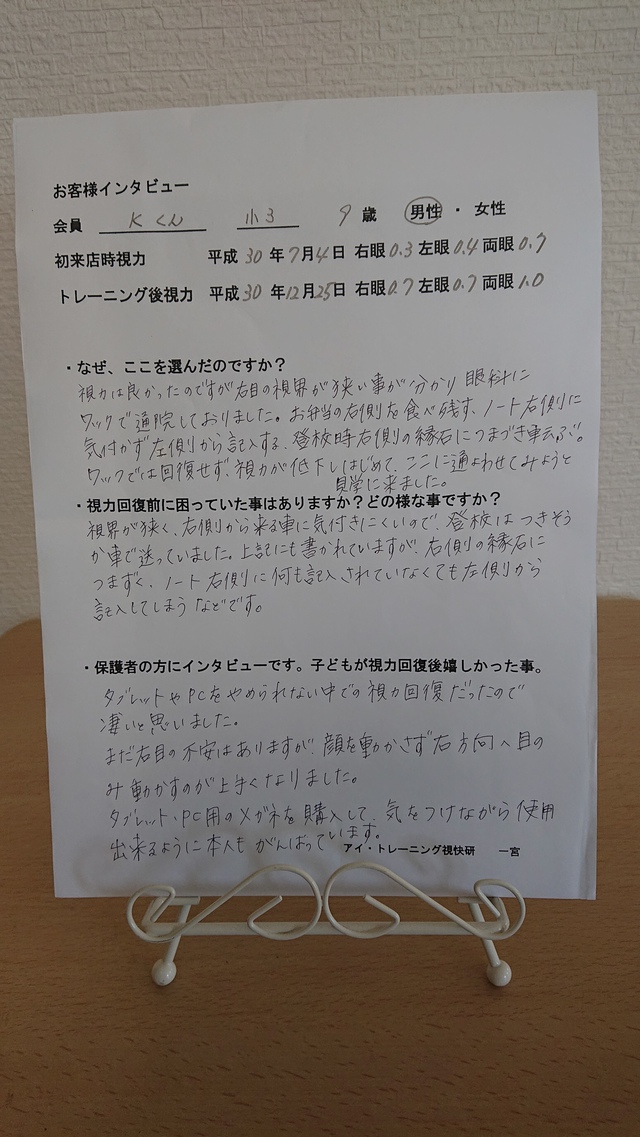 お客様インタビュー
会員 Kくん 小3 9歳 男性・女性
初来店時視力 平成30年7月4日 右眼0.3左眼0.4両眼0.7
トレーニング後視力 平成30年12月25日 右眼0.7左眼0.7両眼1.0
・なぜ、ここを選んだのですか？
視力は良かったのですが右目の視界が狭い事が分かり 眼科に
ワックで通院しておりました。お弁当の右側を食べ残す、ノート右側に
気付かず左側から記入する、登校時右側の縁石につまづき転ぶ。
ワックでは回復せず、視力が低下しはじめて、ここに通わせてみようと
見学に来ました。
・視力回復前に困っていた事はありますか？どの様な事ですか？
視界が狭く、右側から来る車に気付きにくいので、登校はつきそう
か車で送っていました。上記にも書かれていますが、右側の縁石に
つまずく、ノート右側に何も記入されていなくても左側から
記入してしまうなどです。
・保護者の方にインタビューです。子どもが視力回復後嬉しかった事。
タブレットやPCをやめられない中での視力回復だったので
凄いと思いました。
まだ右目の不安はありますが、顔を動かさず右方向へ目の
み動かすのが上手くなりました。
タブレット、PC用のメガネを購入して、気をつけながら使用
出来るように本人もがんばっています。
アイ・トレーニング視快研 一宮